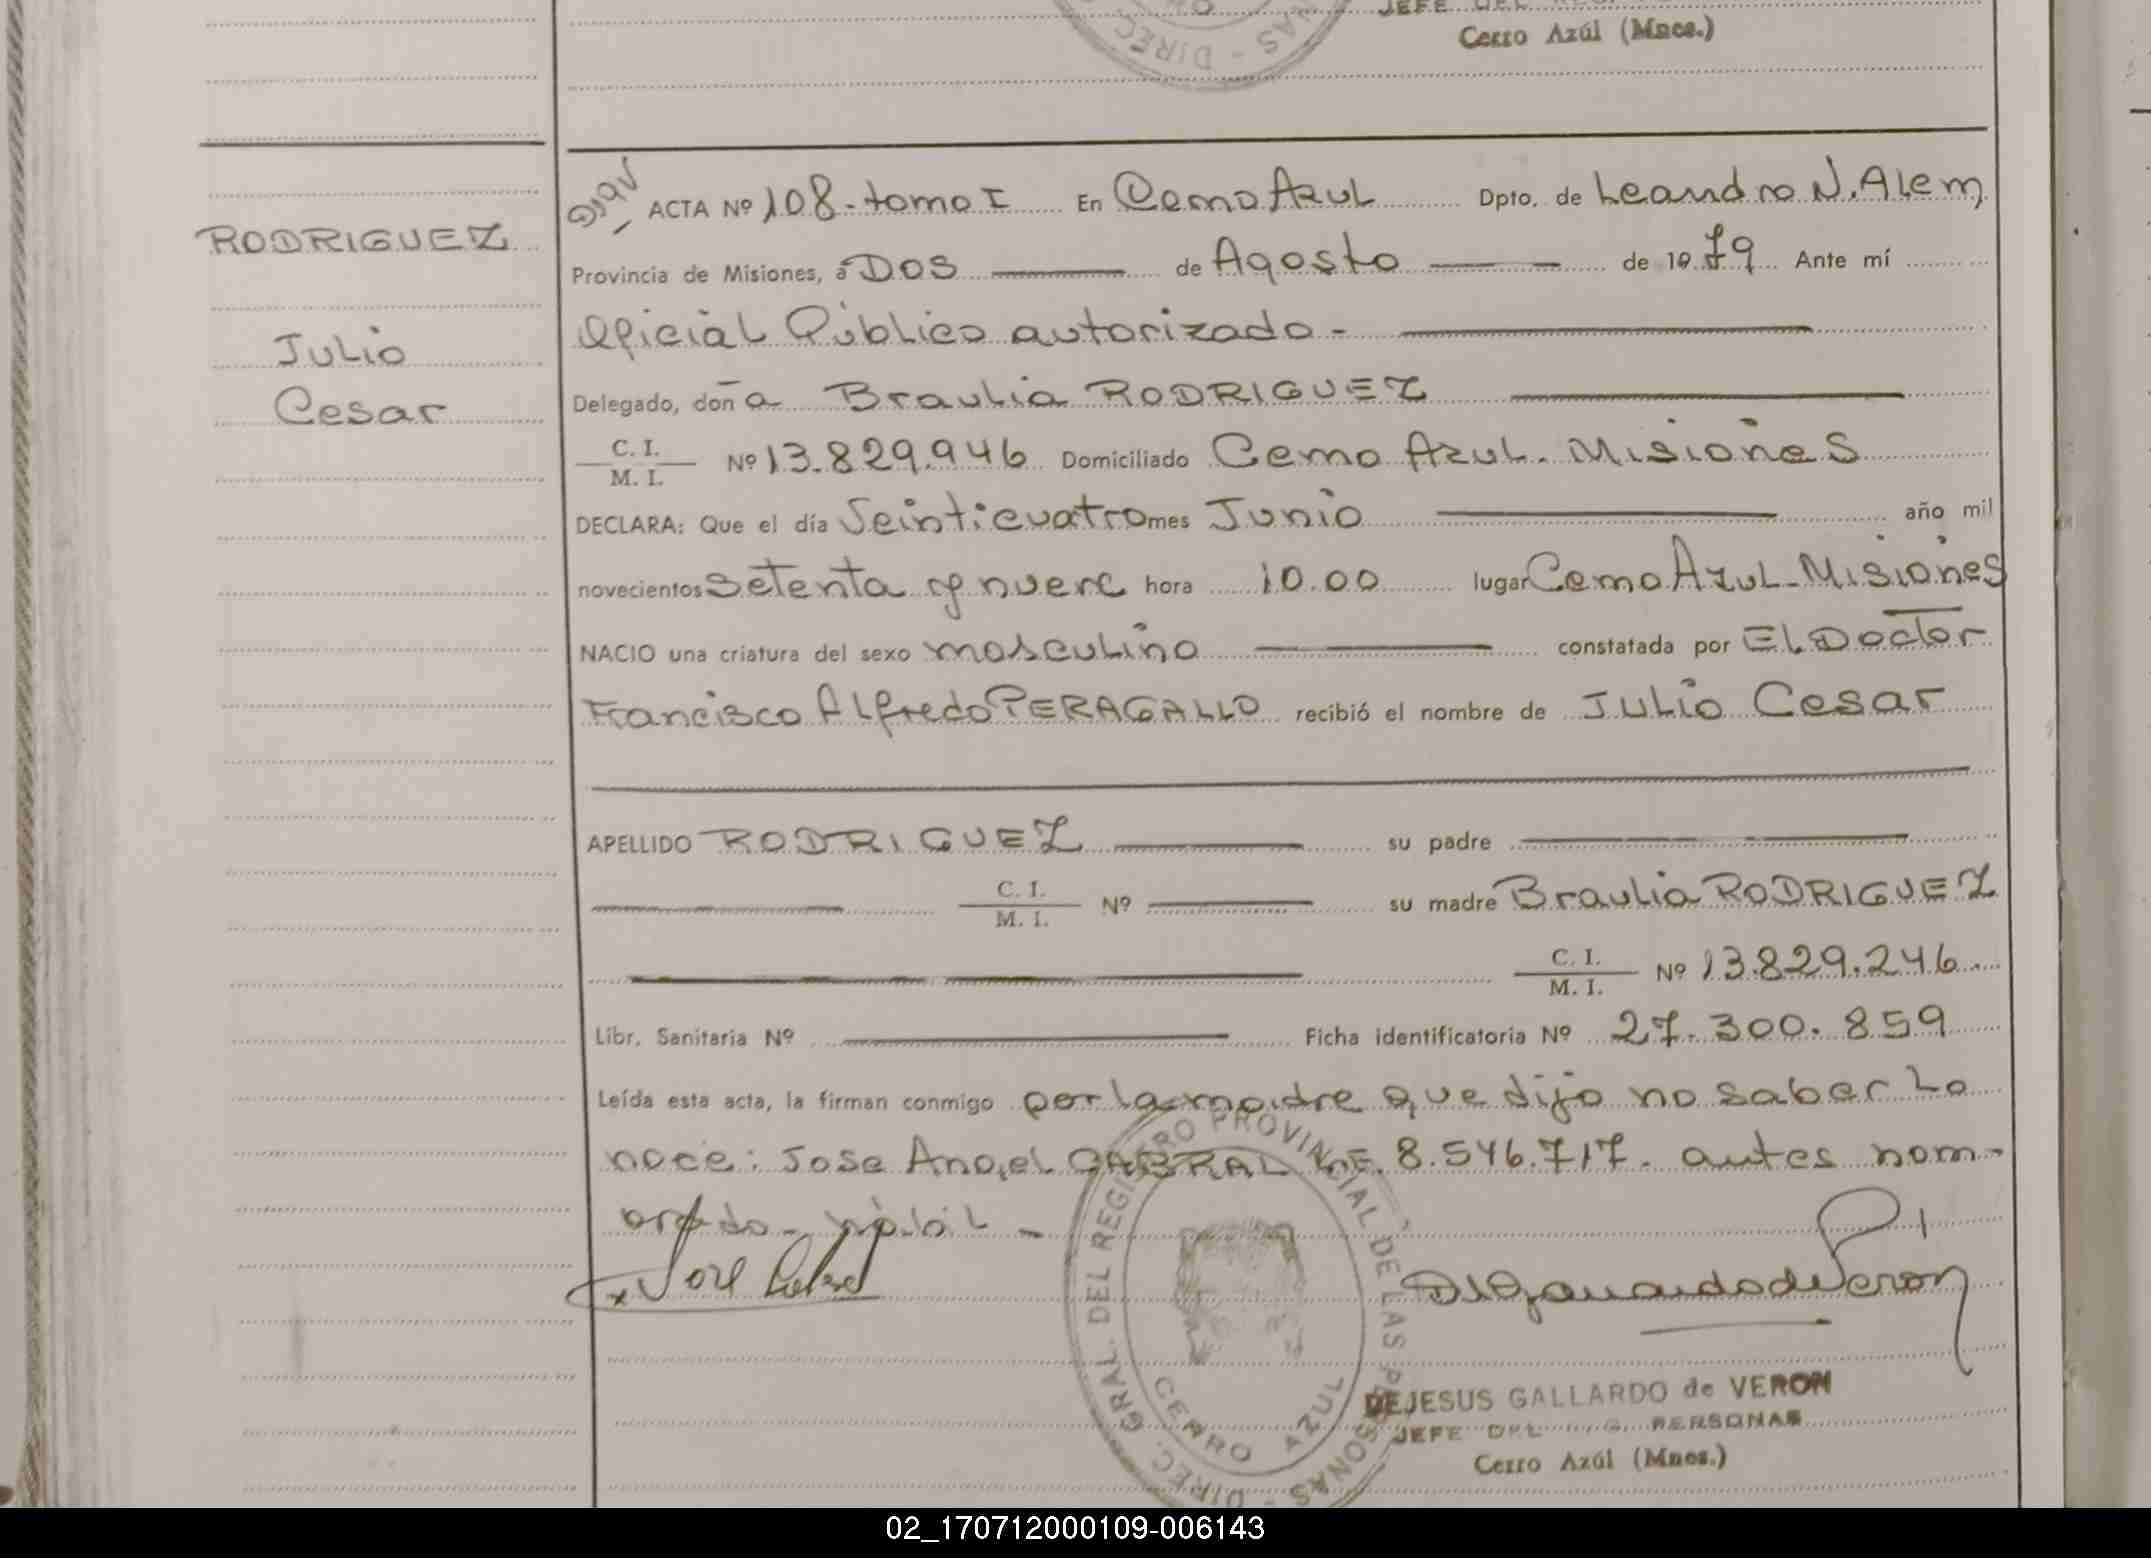 JEFE DEL REG. P
Cerro Azúl (Mnes.)
AS - DIREC
RODRIGUEZ
Julio
Cesar
ACTA Nº 108-tomo I En Cerro Azul Dpto. de Leandro N. Alem
Provincia de Misiones, a Dos de Agosto de 1979 Ante mí
Oficial Público autorizado -
Delegado, doña Braulia RODRIGUEZ
C. I.
M. I.
Nº 13.829.946 Domiciliado Cerro Azul. Misiones
DECLARA: Que el día Veinticuatro mes Junio año mil
novecientos setenta y nueve hora 10.00 lugar Cerro Azul-Misiones
NACIO una criatura del sexo masculino constatada por El Doctor
Francisco Alfredo PERAGALLO recibió el nombre de Julio Cesar
APELLIDO RODRIGUEZ su padre
C. I.
M. I.
Nº su madre Braulia RODRIGUEZ
C. I.
M. I.
Nº 13.829.246
Libr. Sanitaria Nº Ficha identificatoria Nº 27.300.859
Leída esta acta, la firman conmigo por la madre que dijo no saber lo
hace: Jose Angel CABRAL L.E. 8.546.717. antes nom-
brado - hábil -
DIREC. GRAL DEL REGISTRO PROVINCIAL DE LAS PERSONAS -
CERRO AZUL
DEJESUS GALLARDO de VERON
JEFE DEL G. PERSONAS
Cerro Azúl (Mnes.)
02_170712000109-006143